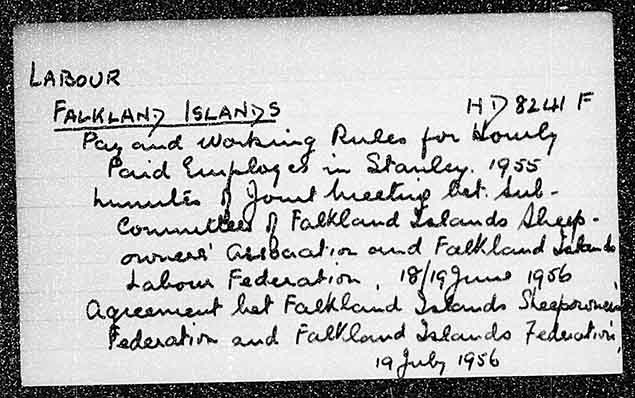 LABOUR
FALKLAND ISLANDS HD 8241 F
Pay and Working Rules for Hourly
Paid Employes in Stanley. 1955
Minutes of Joint Meeting bet. Sub-
Committees of Falkland Islands Sheep-
owners' Association and Falkland Islands
Labour Federation, 18/19 June 1956
Agreement bet Falkland Islands Sheepowners
Federation and Falkland Islands Federation,
19 July 1956